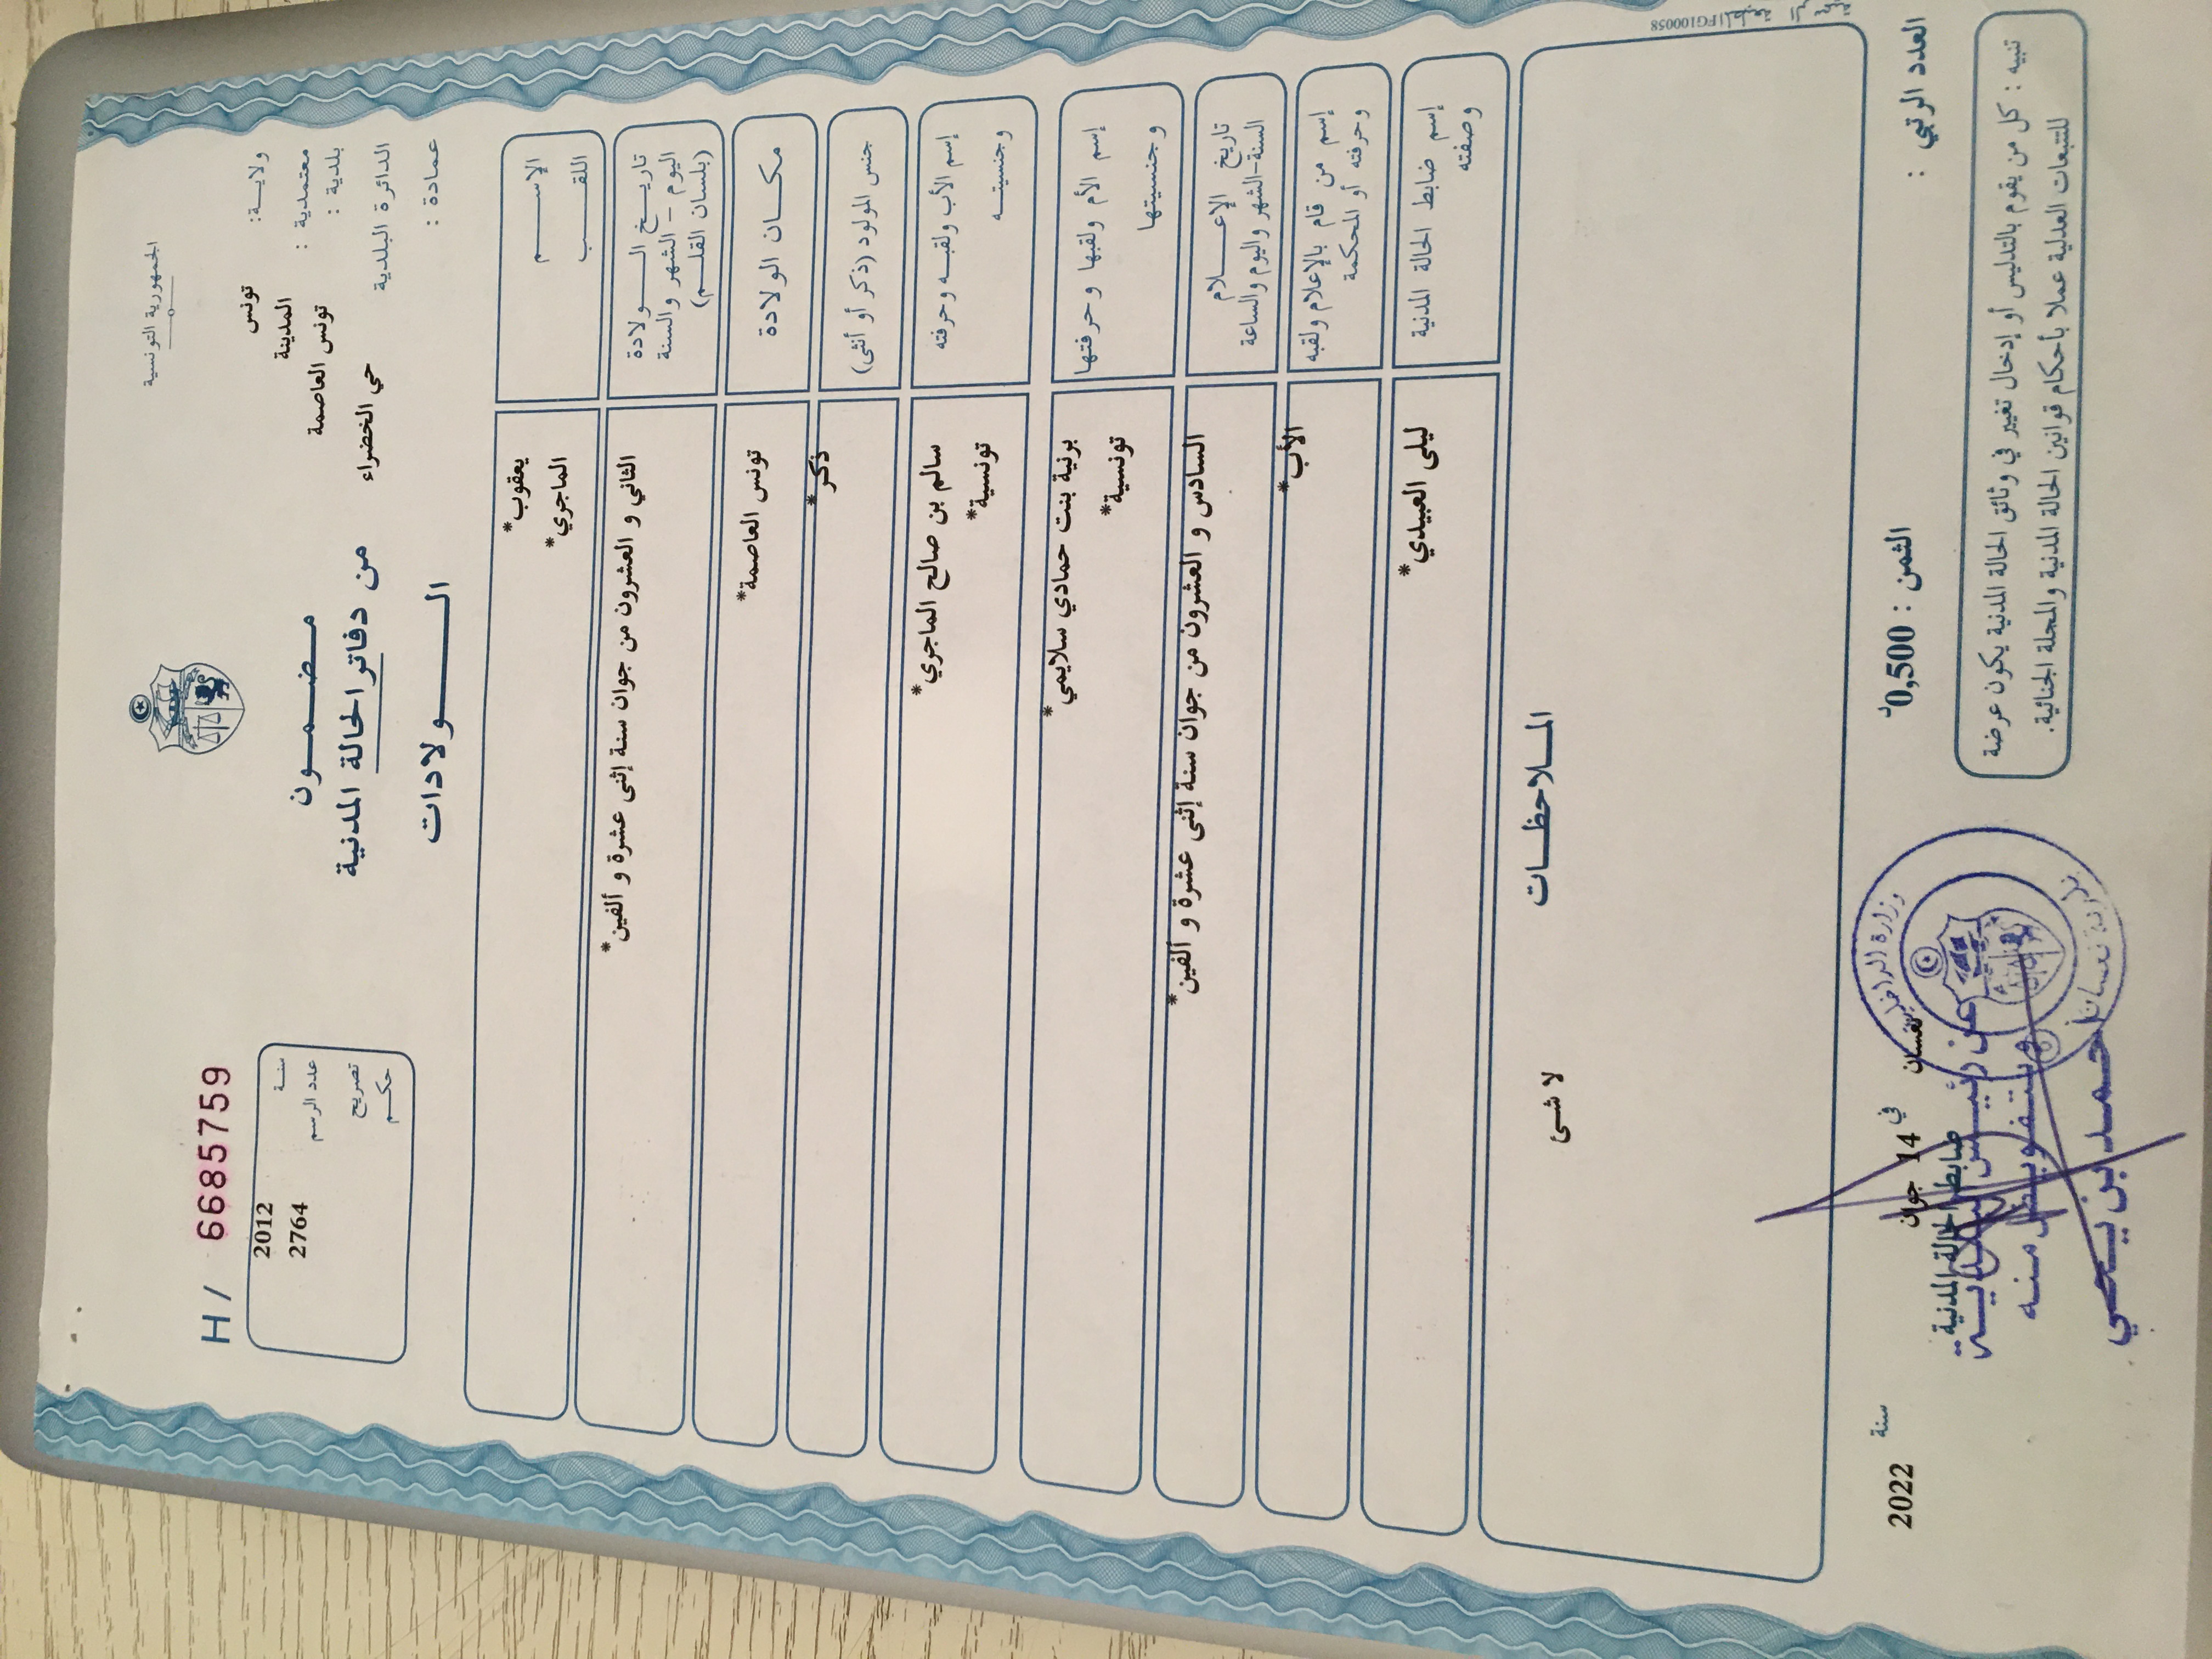 الجمهورية التونسية
H / 6685759
ولايـــة: تونس
معتمدية : المدينة
بلدية : تونس العاصمة
الدائرة البلدية حي الخضراء
عمادة :
سنـة 2012
عدد الرسم 2764
تصريح
حكـم
مـضـمـون
من دفاتر الحالة المدنية
الـولادات
الإســم يعقوب*
اللقـب الماجري*
تاريـخ الـولادة
اليوم - الشهر والسنة
(بلسان القلـم)
الثاني و العشرون من جوان سنة إثنى عشرة و ألفين*
مكـان الولادة تونس العاصمة*
جنس المولود (ذكر أو أنثى) ذكر*
إسم الأب ولقبـه وحرفته سالم بن صالح الماجري*
وجنسيتـه تونسية*
إسم الأم ولقبها وحرفتها برنية بنت حمادي سلايمي*
وجنسيتها تونسية*
تاريخ الإعـلام
السنة-الشهر واليوم والساعة
السادس و العشرون من جوان سنة إثنى عشرة و ألفين*
إسم من قام بالإعلام ولقبه
وحرفته أو المحكمة
الأب*
إسم ضابط الحالة المدنية
وصفته
ليلى العبيدي*
الملاحظـات
لا شئ
FG100058
العدد الرتبي :
الثمن : 0,500د
نعسان في 14 جوان سنة 2022
ضابط الحالة المدنية
تنبيه : كل من يقوم بالتدليس أو إدخال تغيير في وثائق الحالة المدنية يكون عرضة
للتتبعات العدلية عملا بأحكام قوانين الحالة المدنية والمجلة الجنائية.
وزارة الداخلية
بلدية نعسان
عن رئيس البلدية
وبتفويض منه
أحمد بن يحي